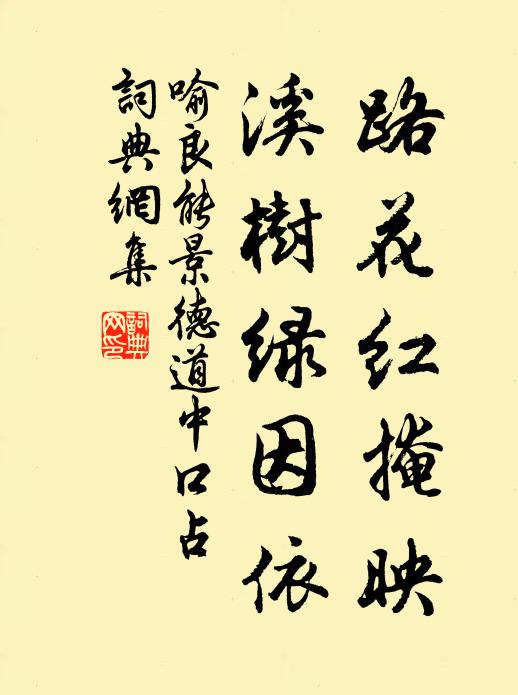 路花紅掩映
溪樹緑因依
喻良能景德道中口占
詞典網集
詞典網印